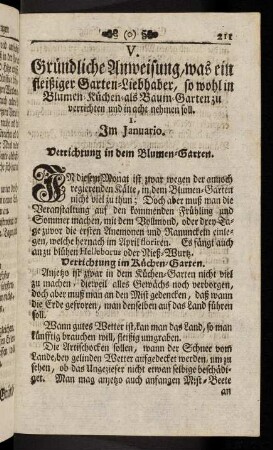 (o) 211
V.
Gründliche Anweisung, was ein
fleißiger Garten-Liebhaber, so wohl in
Blumen-Küchen-als Baum-Garten zu
verrichten und in acht nehmen soll.
1.
Im Januario.
Verrichtung in dem Blumen-Garten.
IN diesem Monat ist zwar wegen der annoch
regierenden Kälte, in dem Blumen-Garten
nicht viel zu thun; Doch aber muß man die
Veranstaltung auf den kommenden Frühling und
Sommer machen, mit dem Vollmond, oder drey Ta-
ge zuvor die ersten Anemonen und Ranunckeln einle-
gen, welche hernach im April floriren. Es fängt auch
an zu blühen Helleborus oder Nieß-Wurtz.
Verrichtung im Küchen-Garten.
Anjetzo ist zwar in dem Küchen-Garten nicht viel
zu machen, dieweil alles Gewächs noch verborgen,
Doch aber muß man an den Mist gedencken, daß wann
die Erde gefroren, man denselben auf das Land führen
soll.
Wann gutes Wetter ist, kan man das Land, so man
künfftig brauchen will, fleißig umgraben.
Die Artischocken sollen, wann der Schnee vom
Lande, bey gelinden Wetter aufgedecket worden, um zu
sehen, ob das Ungeziefer nicht etwan selbige beschädi-
get. Man mag anjetzo auch anfangen Mist-Beete
an